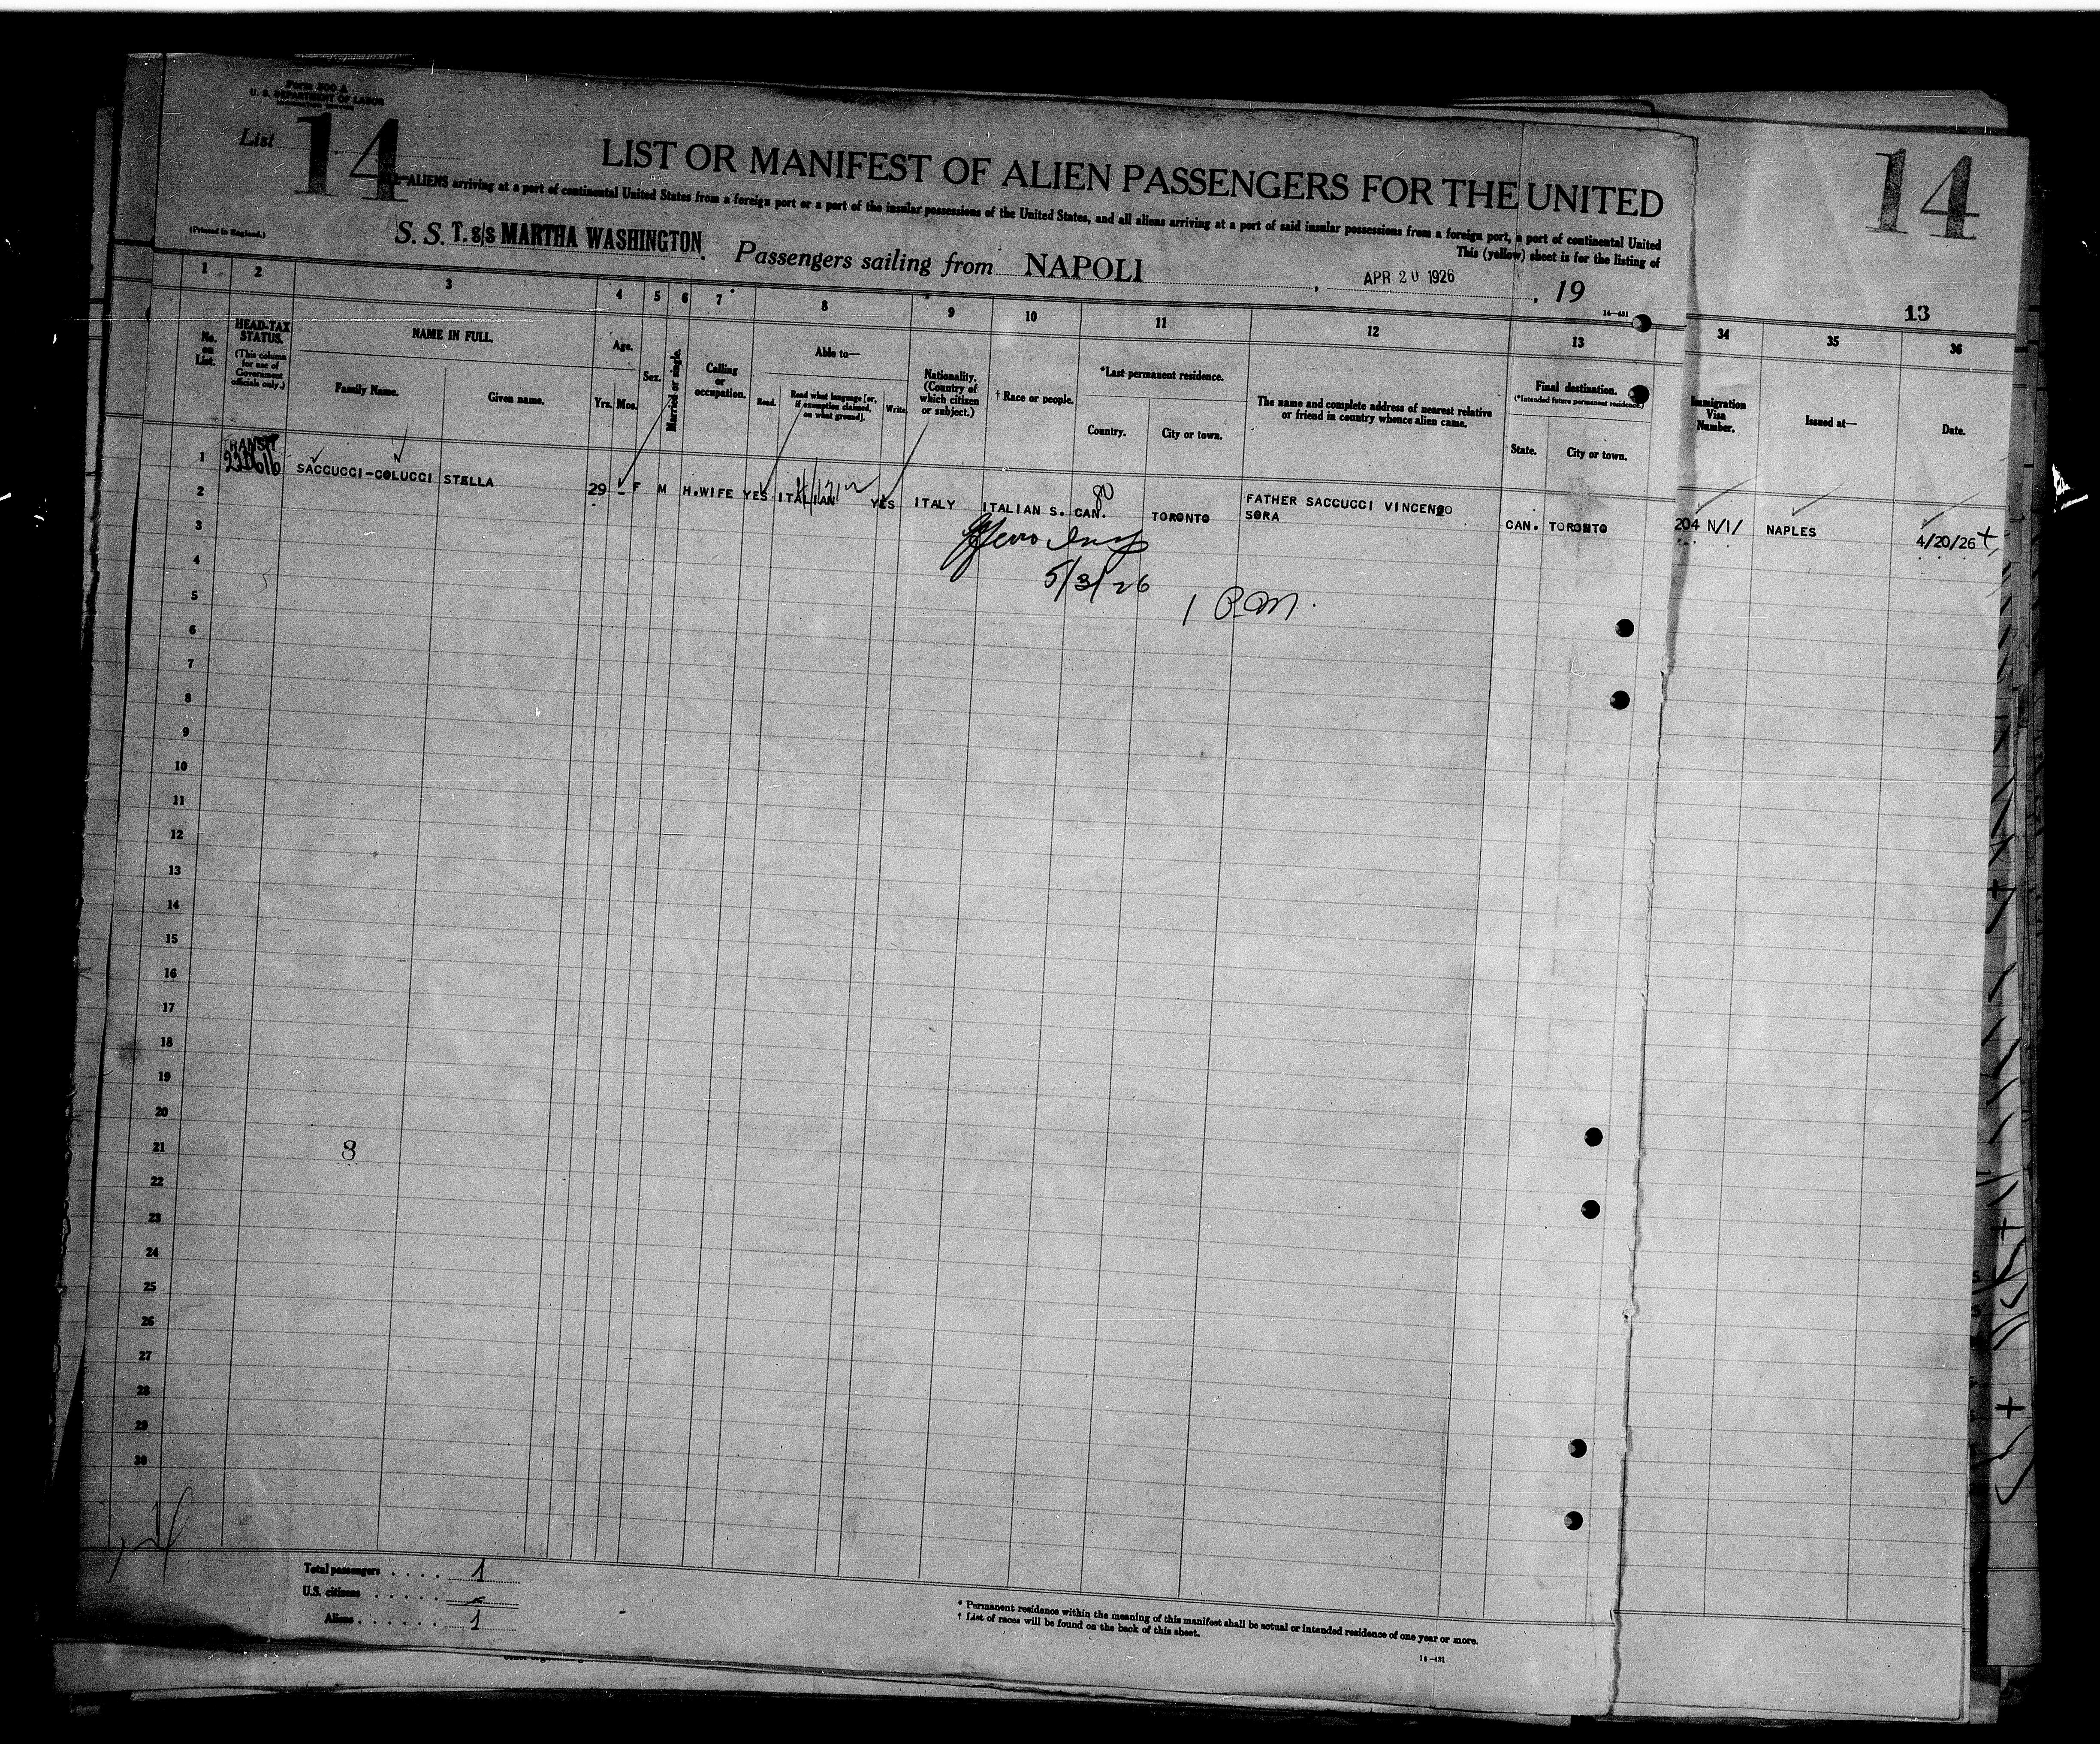 Form 500 A
U. S. DEPARTMENT OF LABOR
IMMIGRATION SERVICE
List 14
14
LIST OR MANIFEST OF ALIEN PASSENGERS FOR THE UNITED
ALIENS arriving at a port of continental United States from a foreign port or a port of the insular possessions of the United States, and all aliens arriving at a port of said insular possessions from a foreign port, a port of continental United
This (yellow) sheet is for the listing of
(Printed in England.)
S. S. T. s/s MARTHA WASHINGTON. Passengers sailing from NAPOLI, APR 20 1926, 19
14—431
13
1 2 3 4 5 6 7 8 9 10 11 12 13 34 35 36
No. on List.
HEAD-TAX STATUS.
(This column for use of Government officials only.)
NAME IN FULL.
Family Name. Given name.
Age.
Yrs. Mos.
Sex.
Married or single.
Calling or occupation.
Able to—
Read. Read what language [or, if exemption claimed, on what ground]. Write.
Nationality. (Country of which citizen or subject.)
† Race or people.
*Last permanent residence.
Country. City or town.
The name and complete address of nearest relative or friend in country whence alien came.
Final destination.
(*Intended future permanent residence.)
State. City or town.
Immigration Visa Number.
Issued at—
Date.
TRANSIT
1 SACCUCCI-COLUCCI STELLA 29 - F M H.WIFE YES ITALIAN YES ITALY ITALIAN S. CAN. TORONTO FATHER SACCUCCI VINCENZO CAN. TORONTO 204 N/I/ NAPLES 4/20/26
SORA
2
3
5/3/26
4
1 P.M.
5
6
7
8
9
10
11
12
13
14
15
16
17
18
19
20
21 8
22
23
24
25
26
27
28
29
30
Total passengers . . . . 1
U.S. citizens . . . . . .
Aliens . . . . . . 1
* Permanent residence within the meaning of this manifest shall be actual or intended residence of one year or more.
† List of races will be found on the back of this sheet.
14—431